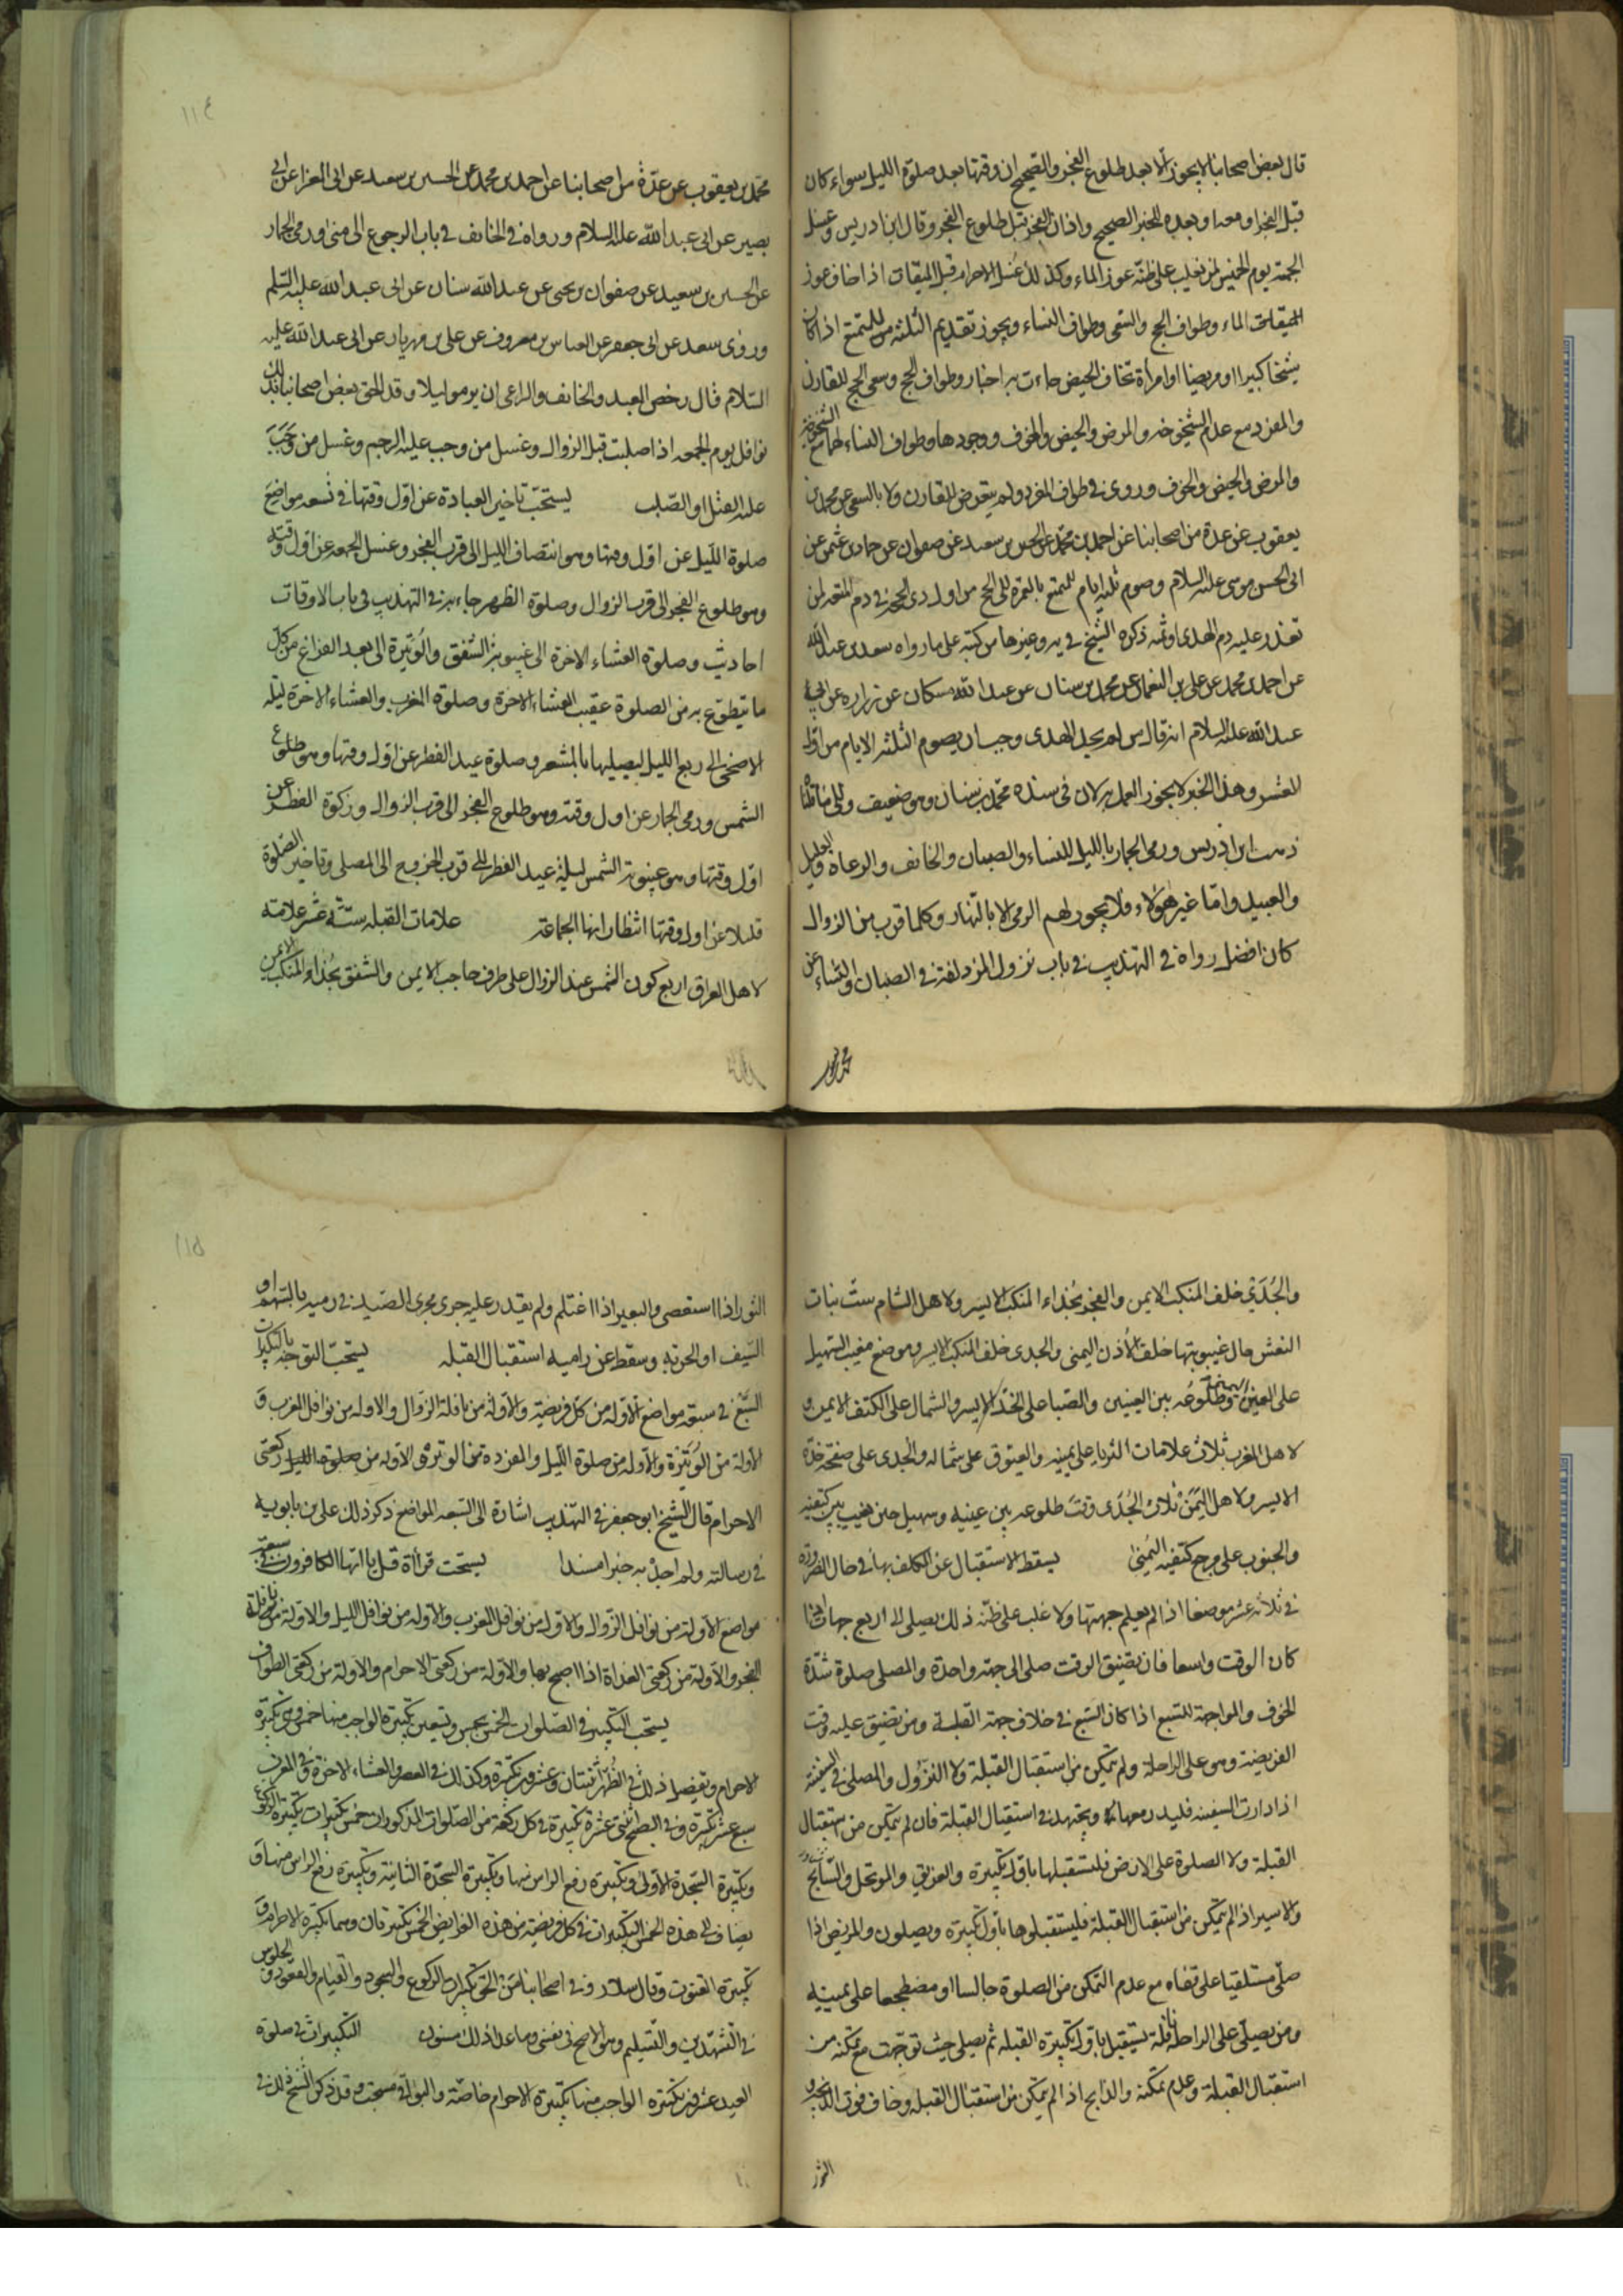 قال بعض اصحابنا لا يجوز الا بعد طلوع الفجر والصحيح ان وقتها بعد صلوة الليل سواء كان
قبل الفجر او معه او بعده للخبر الصحيح واذان الفجر قبل طلوع الفجر وقال ابن ادريس وغسل
الجمعة يوم الخميس لمن يغلب على ظنه عوز الماء وكذلك غسل الاحرام قبل الميقات اذا خاف عوز
الميقات الماء وطواف الحج والسعى وطواف النساء ويجوز تقديم الثلثه للمتمتع اذا كان
شيخا كبيرا او مريضا او امرأة تخاف الحيض جاءت به اخبار وطواف الحج وسعى الحج للقارن
والمفرد مع عدم الشيخوخه والمرض والحيض والخوف ووجودها وطواف النساء لهما مع الشيخوخة
والمرض والحيض والخوف وروى في طواف المفرد ولم يتعرض للقارن ولا بالسعى عن محمد بن
يعقوب عن عدة من اصحابنا عن احمد بن محمد عن الحسين بن سعيد عن صفوان عن حماد بن عثمن عن
ابى الحسن موسى عليه السلام وصوم ثلثه ايام للمتمتع بالعمرة الى الحج من اول ذى الحجة في دم المتعه لمن
تعذر عليه دم الهدى او ثمنه ذكره الشيخ في يه وغيرها من كتبه على ما رواه سعد بن عبد الله
عن احمد بن محمد عن على بن النعمان عن محمد بن سنان عن عبد الله بن مسكان عن زراره عن ابى
عبد الله عليه السلام انه قال من لم يجد الهدى وجب ان يصوم الثلثه الايام من اول
العشر وهذا الخبر لا يجوز العمل به لان فى سنده محمد بن سنان وهو ضعيف والى ما قلناه
ذهب ابن ادريس ورمى الجمار بالليل للنساء والصبيان والخائف والرعاة والعليل
والعبيد واما غير هؤلاء فلا يجوز لهم الرمى الا بالنهار وكلما قرب من الزوال
كان افضل رواه فى التهذيب فى باب نزول المزدلفة فى الصبيان والنساء عن
محمد بن
محمد بن يعقوب عن عدة من اصحابنا عن احمد بن محمد عن الحسين بن سعيد عن ابى المغرا عن ابى
بصير عن ابى عبد الله عليه السلام ورواه فى الخائف فى باب الرجوع الى منى ورمى الجمار
عن الحسين بن سعيد عن صفوان بن يحيى عن عبد الله سنان عن ابى عبد الله عليه السلم
وروى سعد عن ابى جعفر عن العباس بن معروف عن على بن مهزيار عن ابى عبد الله عليه
السلام قال رخص العبد والخائف والراعى ان يرموا ليلا وقد الحق بعض اصحابنا بذلك
نوافل يوم الجمعه اذا صليت قبل الزوال وغسل من وجب عليه الرجم وغسل من وجب
عليه القتل او الصلب يستحب تاخير العبادة عن اول وقتها فى تسعه مواضع
صلوة الليل عن اول وقتها وهو انتصاف الليل الى قرب الفجر وغسل الجمعه عن اول وقته
وهو طلوع الفجر الى قرب الزوال وصلوة الظهر جاء به فى التهذيب فى باب الاوقات
احاديث وصلوة العشاء الاخرة الى غيبوبة الشفق والوتيرة الى بعد الفراغ من كل
ما يتطوع به من الصلوة عقيب العشاء الاخرة وصلوة المغرب والعشاء الاخرة ليلة
الاضحى الى ربع الليل ليصليها بالمشعر وصلوة عيد الفطر عن اول وقتها وهو طلوع
الشمس ورمى الجمار عن اول وقته وهو طلوع الفجر الى قرب الزوال وزكوة الفطر عن
اول وقتها وهو غيبوبة الشمس ليلة عيد الفطر الى قرب الخروج الى المصلى وتاخير الصلوة
قليلا عن اول وقتها انتظارا بها الجماعة علامات القبله ستة عشر علامة
لاهل العراق اربع كون الشمس عند الزوال على طرف حاجب الايمن والشفق بحذاء المنكب الايمن
١١٤
والجدى خلف المنكب الايمن والفجر بحذاء المنكب الايسر ولاهل الشام ست بنات
النعش حال غيبوبتها خلف الاذن اليمنى والجدى خلف المنكب الايسر وموضع مغيب السهيل
على العين اليمنى وطلوعه بين العينين والصبا على الخد الايسر والشمال على الكتف الايمن و
لاهل المغرب ثلاث علامات الثريا على يمينه والعيوق على شماله والجدى على صفحة خده
الايسر ولاهل اليمن ثلاث الجدى وقت طلوعه بين عينيه وسهيل حين يغيب بين كتفيه
والجنوب على مرجع كتفيه اليمنى يسقط الاستقبال عن المكلف بها فى حال الضرورة
فى ثلاثه عشر موضعا اذا لم يعلم جهتها ولا غلب على ظنه ذلك يصلى الى اربع جهات اذا
كان الوقت واسعا فان تضيق الوقت صلى الى جهة واحدة والمصلى صلوة شدة
الخوف والمواجهة للسبع اذا كان السبع فى خلاف جهة القبلة ومن تضيق عليه وقت
الفريضة وهو على الراحلة ولم يتمكن من استقبال القبلة ولا النزول والمصلى فى السفينة
اذا دارت السفينه فليدر معها و يجتهد فى استقبال القبلة فان لم يتمكن من استقبال
القبلة ولا الصلوة على الارض فليستقبلها باول تكبيرة والغريق والموتحل والسابح
والاسير اذا لم يتمكن من استقبال القبلة فليستقبلوها باول تكبيرة ويصلون والمريض اذا
صلى مستلقيا على قفاه مع عدم التمكن من الصلوة جالسا او مضطجعا على يمينه
ومن يصلى على الراحلة نافلة يستقبل باول تكبيرة القبله ثم يصلى حيث توجهت مع تمكنه من
استقبال القبلة وعدم تمكنه والذابح اذا لم يتمكن من استقبال القبله وخاف فوت الذبيحة و
الثور
الثور اذا استعصى والبعير اذا اغتلم ولم يقدر عليه جرى مجرى الصيد فى رميه بالسهم او
السيف او الحربة وسقط عن راميه استقبال القبله يستحب التوجه بالتكبيرات
السبع فى سبعة مواضع الاوله من كل فريضة والاولة من نافلة الزوال والاولة من نوافل المغرب و
الاولة من الوتيرة والاولة من صلوة الليل والمفردة من الوتر والاولة من ركعتى
الاحرام قال الشيخ ابو جعفر فى التهذيب اشارة الى السبعه المواضع ذكر ذلك على بن بابويه
فى رسالته ولم اجد به خبرا مسندا يستحب قرأة قل يا ايها الكافرون فى سبعة
مواضع الاولة من نوافل الزوال والاولة من نوافل المغرب والاولة من نوافل الليل والاولة من نافلة
الفجر والاولة من ركعتى الغداة اذا اصبح بها والاولة من ركعتى الاحرام والاولة من ركعتى الطواف
يستحب التكبير فى الصلوات الخمس بخمس وتسعين تكبيرة الواجب منها خمس وهى تكبيرة
الاحرام وتفصيل ذلك فى الظهر ثنتان وعشرون تكبيرة وكذلك فى العصر والعشاء الاخرة وفى المغرب
سبع عشر تكبيرة وفى الصبح ثنتى عشرة تكبيرة فى كل ركعة من الصلوات المذكورات خمس تكبيرات تكبيرة الركوع
وتكبيرة السجدة الاولى وتكبيرة رفع الراس منها وتكبيرة السجدة الثانية وتكبيرة رفع الراس منها و
يضاف الى هذه الخمس التكبيرات فى كل فريضة من هذه الفرايض الخمس تكبيرتان وهما تكبيرة الاحرام و
تكبيرة القنوت وقال سلار وفى اصحابنا من الحق تكبيرات الركوع والسجود والقيام والقعود و الجلوس
فى التشهدين والتسليم وهو الاصح فى نفسى وما عدا ذلك مسنون التكبيرات فى صلوة
العيد عشرون تكبيرة الواجب منها تكبيرة الاحرام خاصة والبواقى مستحبة وقد ذكر الشيخ ذلك فى
١١٥